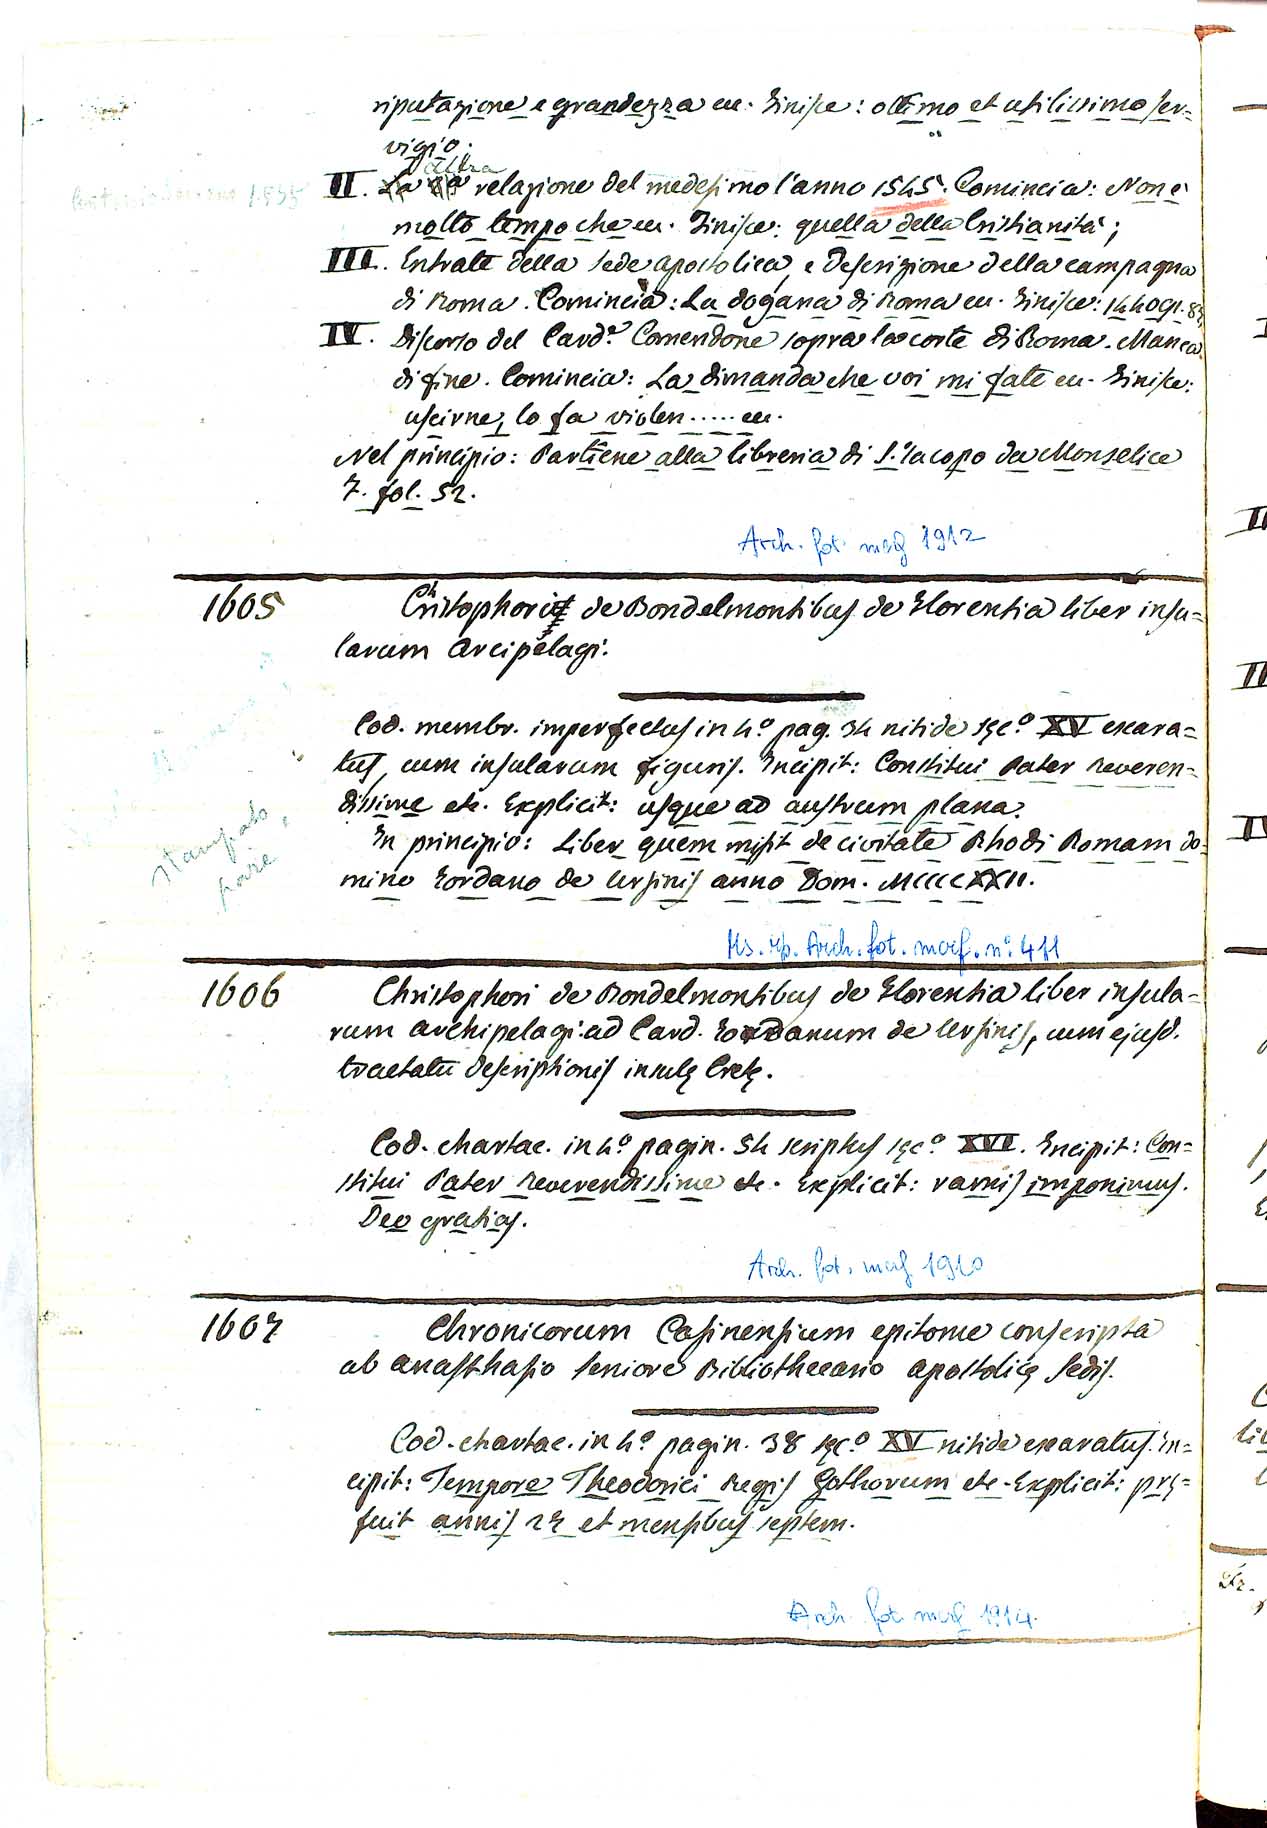 riputazione e grandezza ec. Finisce: ottimo et utilissimo ser=
vigio.
II. altra relazione del medesimo l'anno 1545. Comincia: Non è
molto tempo che ec. Finisce: quella della Cristianità;
III. Entrate della Sede apostolica, e descrizione della campagna
di Roma. Comincia: La dogana di Roma ec. Finisce:
IV. Discorso del Card.e Comendone sopra la corte di Roma. Manca
di fine. Comincia: La dimanda che voi mi fate ec. Finisce:
uscirne, lo fa violen..... ec.
Nel principio: Partiene alla libreria di S. Iacopo da Monselice
7. fol. 52.
Arch. fot. marc. 1912
1605 Christophori de Bondelmontibus de Florentia liber insu=
larum Arcipelagi.
Cod. membr. imperfectus in 4.o pag. 34 nitide sęc.o XV exara=
tus, cum insularum figuris. Incipit: Constitui Pater Reveren=
dissime etc. Explicit: usque ad austrum plana.
In principio: Liber quem misit de civitate Rhodi Romam do=
mino Jordano de Ursinis anno Dom. MCCCCXXII.
Stampato
Ms. rip. Arch. fot. marc. n.o 411
1606 Christophori de Bondelmontibus de Florentia liber insula=
rum archipelagi ad Card. Jordanum de Ursinis, cum ejusd.
tractatu descriptionis insulę Cretę.
Cod. chartac. in 4.o pagin. 54 scriptus sęc.o XVI. Incipit: Con=
stitui Pater Reverendissime etc. Explicit: ramis imponimus.
Deo gratias.
Arch. fot. marc. 1910
1607 Chronicorum Casinensium epitome conscripta
ab Anasthasio seniore Bibliothecario apostolicę Sedis.
Cod. chartac. in 4.o pagin. 38 sęc.o XV nitide exaratus. In=
cipit: Tempore Theodorici Regis Gothorum etc. Explicit: prę=
fuit annis 27 et mensibus septem.
Arch. fot. marc. 1914.